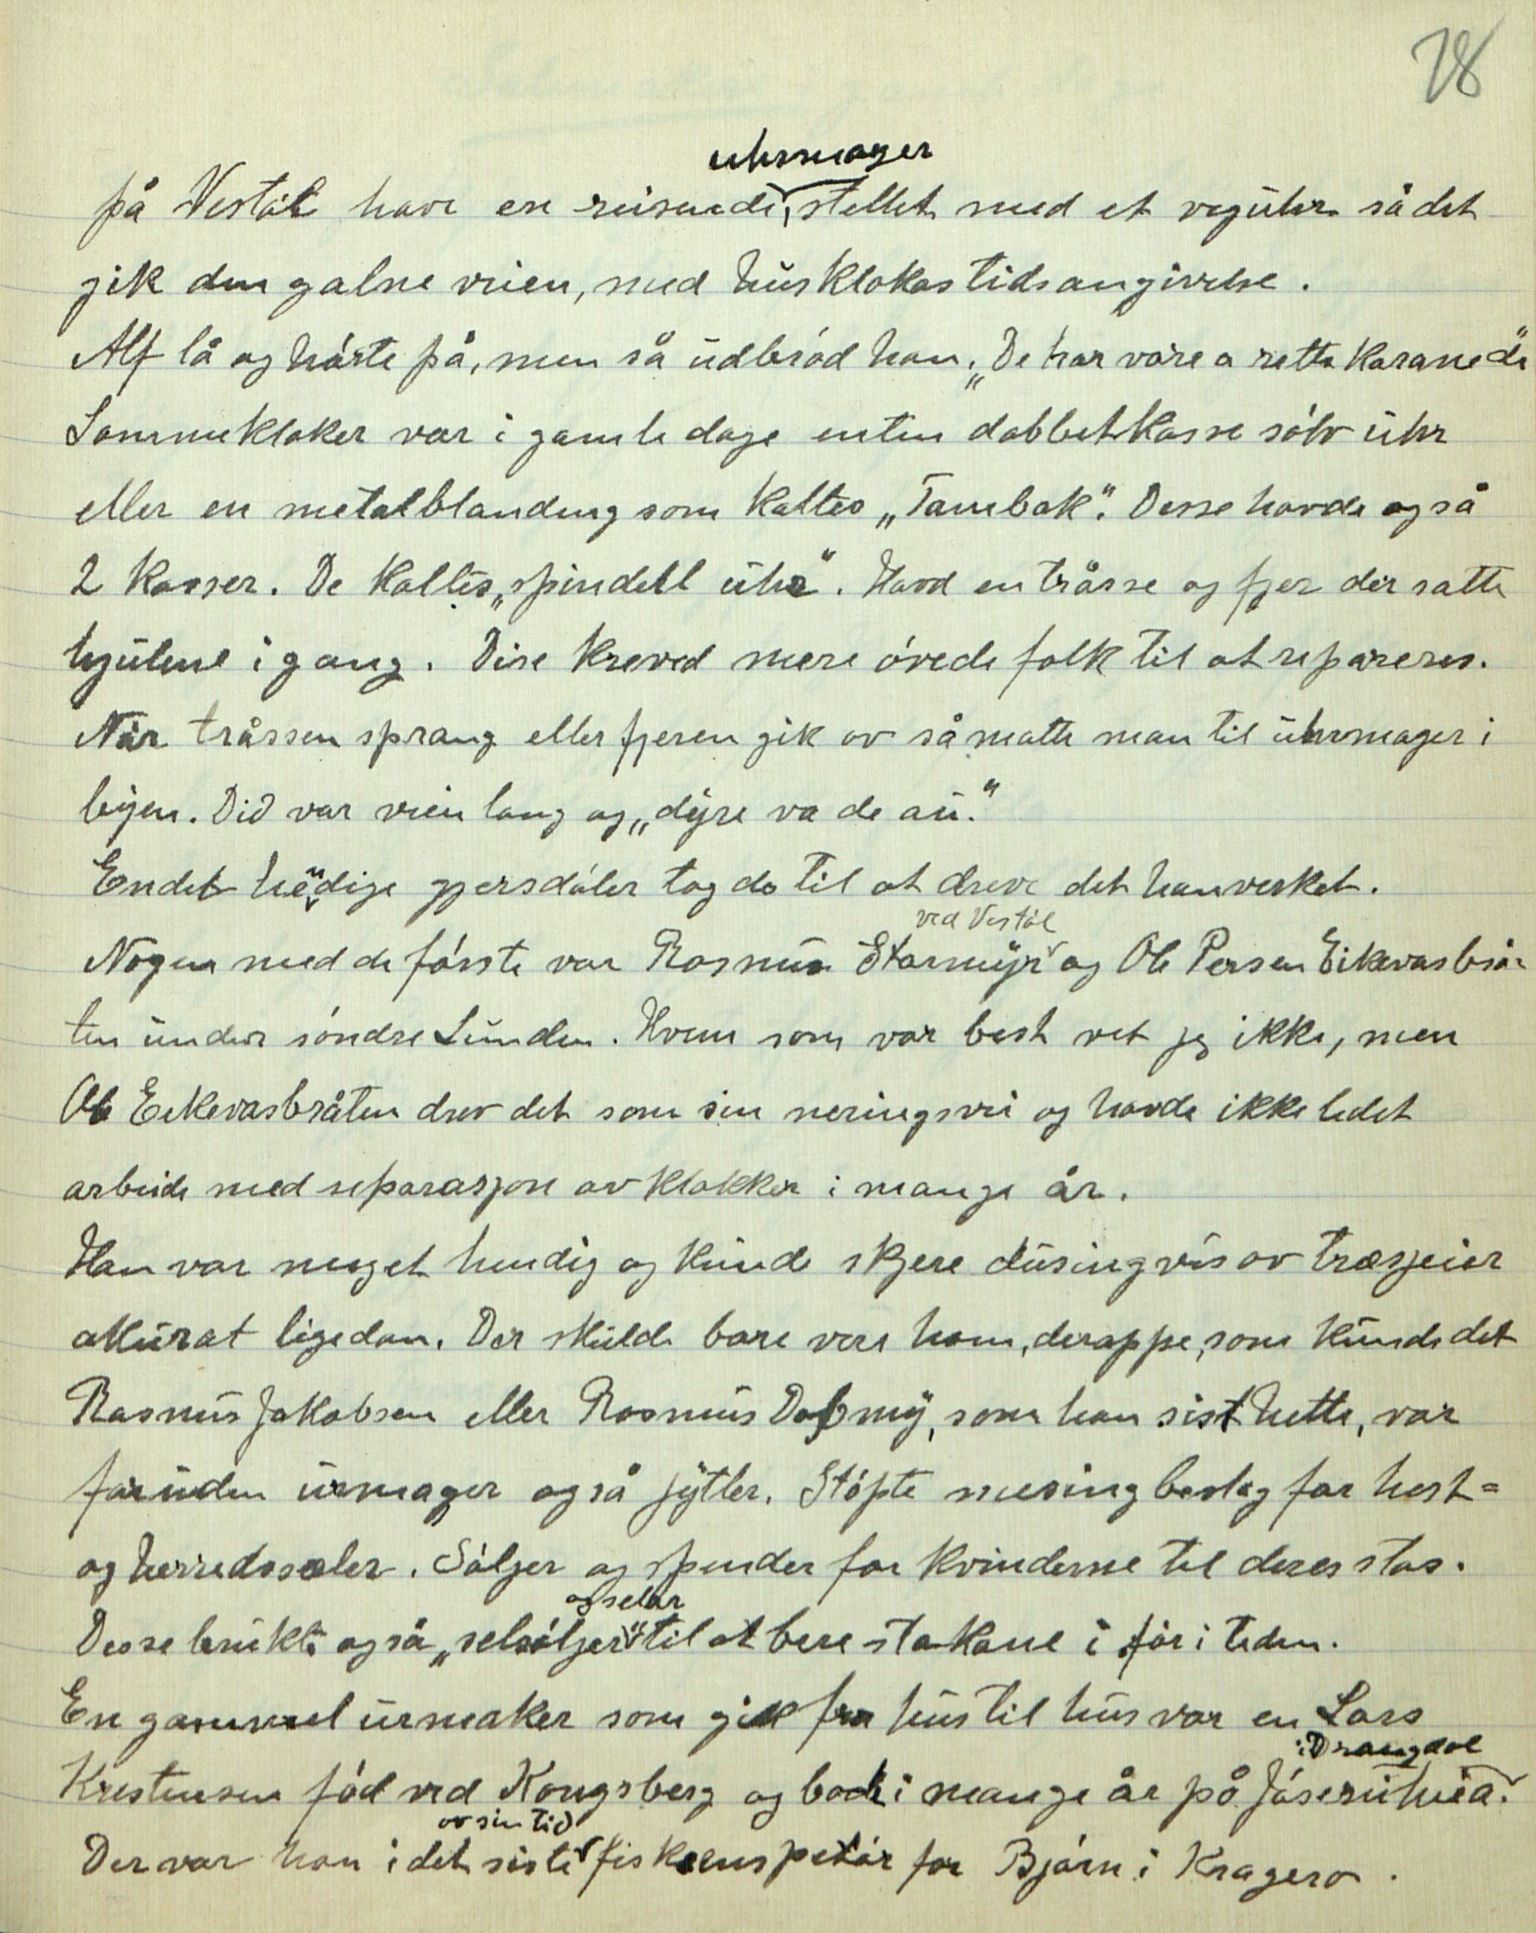 28
uhrmager
på Vestøl have en reisende stellet med et veguhr så det
gik den galne veien, med husklokas tidsangivelse.
Alf lå og hørte på, men så udbrød han: „De har vore a rette karane de"
Lommeklokker var i gamle dage enten dobbeltkasse sølv uhr
eller en metalblanding som kaltes „Tambak". Desse havde også
2 kasser. De kaltes „spindell uhr". Havd en tråsse og fjer der satte
hjulene i gang. Dise kreved mere øvede folk til at repareres.
Når tråssen sprang eller fjeren gik av så måtte man til uhrmager i
byen. Did var veien lang og „dyre va de au."
Endel hendige gjersdøler tog da til at dreve det hanverket.
ved Vestøl
Nogen med de første var Rasmus Stormyr og Ole Persen Eikevasbrå-
ten under søndre Lunden. Hvem som var best vet jeg ikke, men
Ole Eekevasbråten drev det som sin neringsvei og havde ikke ledet
arbeide med reparasjon av klokker i mange år.
Han var meget hendig og kunde skjere dusingvis av træsjeier
akurat ligedan. Der skulde bare vere ham, deroppe, som kunde det
Rasmus Jakobsen eller Rasmus Dalmy, som han sist hette, var
foruden urmager også jytler. Støpte mesingbeslag for hest=
og herredssæler. Søljer og spender for kvinderne til deres stas.
og selar
Desse brukte også „selsøljer" til at bere stakane i før i teden.
En gammel urmaker som gik fra hus til hus var en Lars
i Drangdal
Kristensen fød ved Kongsberg og bode i mange år på Jøseruheia.
av sin tid
Der var han i det siste fiskeenspektør for Bjørn i Kragerø.